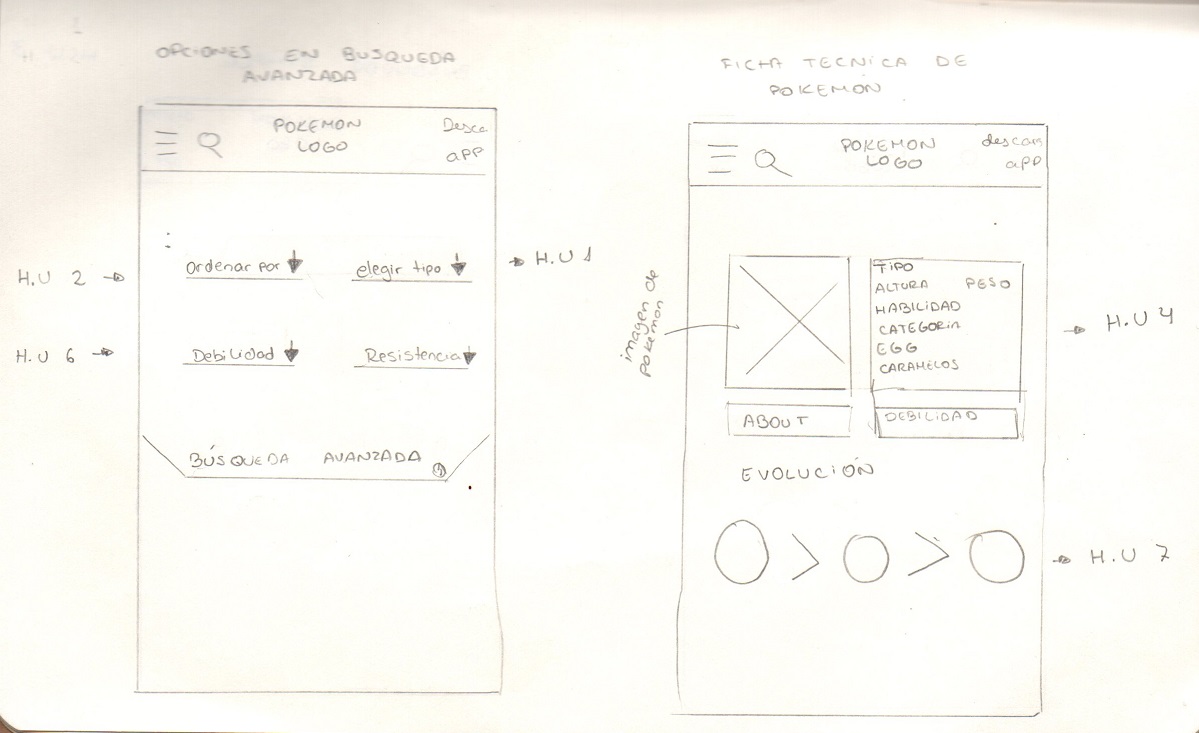 OPCIONES EN BUSQUEDA
AVANZADA
POKEMON
LOGO
Desca
aPP
H.U 2
Ordenar por
elegir tipo
H.U 1
H.U 6
Debilidad
Resistencia
BÚSQUEDA AVANZADA
FICHA TECNICA DE
POKEMON
POKEMON
LOGO
descar
app
imagen de
Pokemon
TIPO
ALTURA PESO
HABILIDAD
CATEGORIA
EGG
CARAMELOS
H.U 4
ABOUT
DEBILIDAD
EVOLUCIÓN
H.U 7